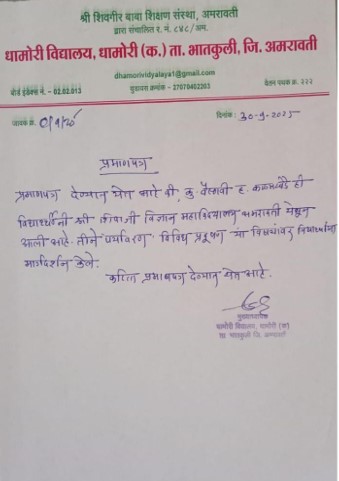 श्री शिवगीर बाबा शिक्षण संस्था, अमरावती
द्वारा संचालित र. नं. ८४८/अम.
धामोरी विद्यालय, धामोरी (क.) ता. भातकुली, जि. अमरावती
dhamorividyalaya1@gmail.com
बोर्ड इंडेक्स नं. - 02.02.013
युडायस क्रमांक - 27070402203
वेतन पथक क्र. २२२
जावक क्र.
दिनांक: 30-9-2025
प्रमाणपत्र
प्रमाणपत्र देण्यात येत आहे की, कु. वैष्णवी ह. ही
विद्यार्थीनी श्री शिवाजी विज्ञान महाविद्यालय अमरावती येथून
आली आहे. तीने पर्यावरण विविध प्रदूषण या विषयांवर विद्यार्थ्यांना
मार्गदर्शन केले.
करिता प्रमाणपत्र देण्यात येत आहे.
मुख्याध्यापक
धामोरी विद्यालय, धामोरी (क)
ता. भातकुली जि. अमरावती